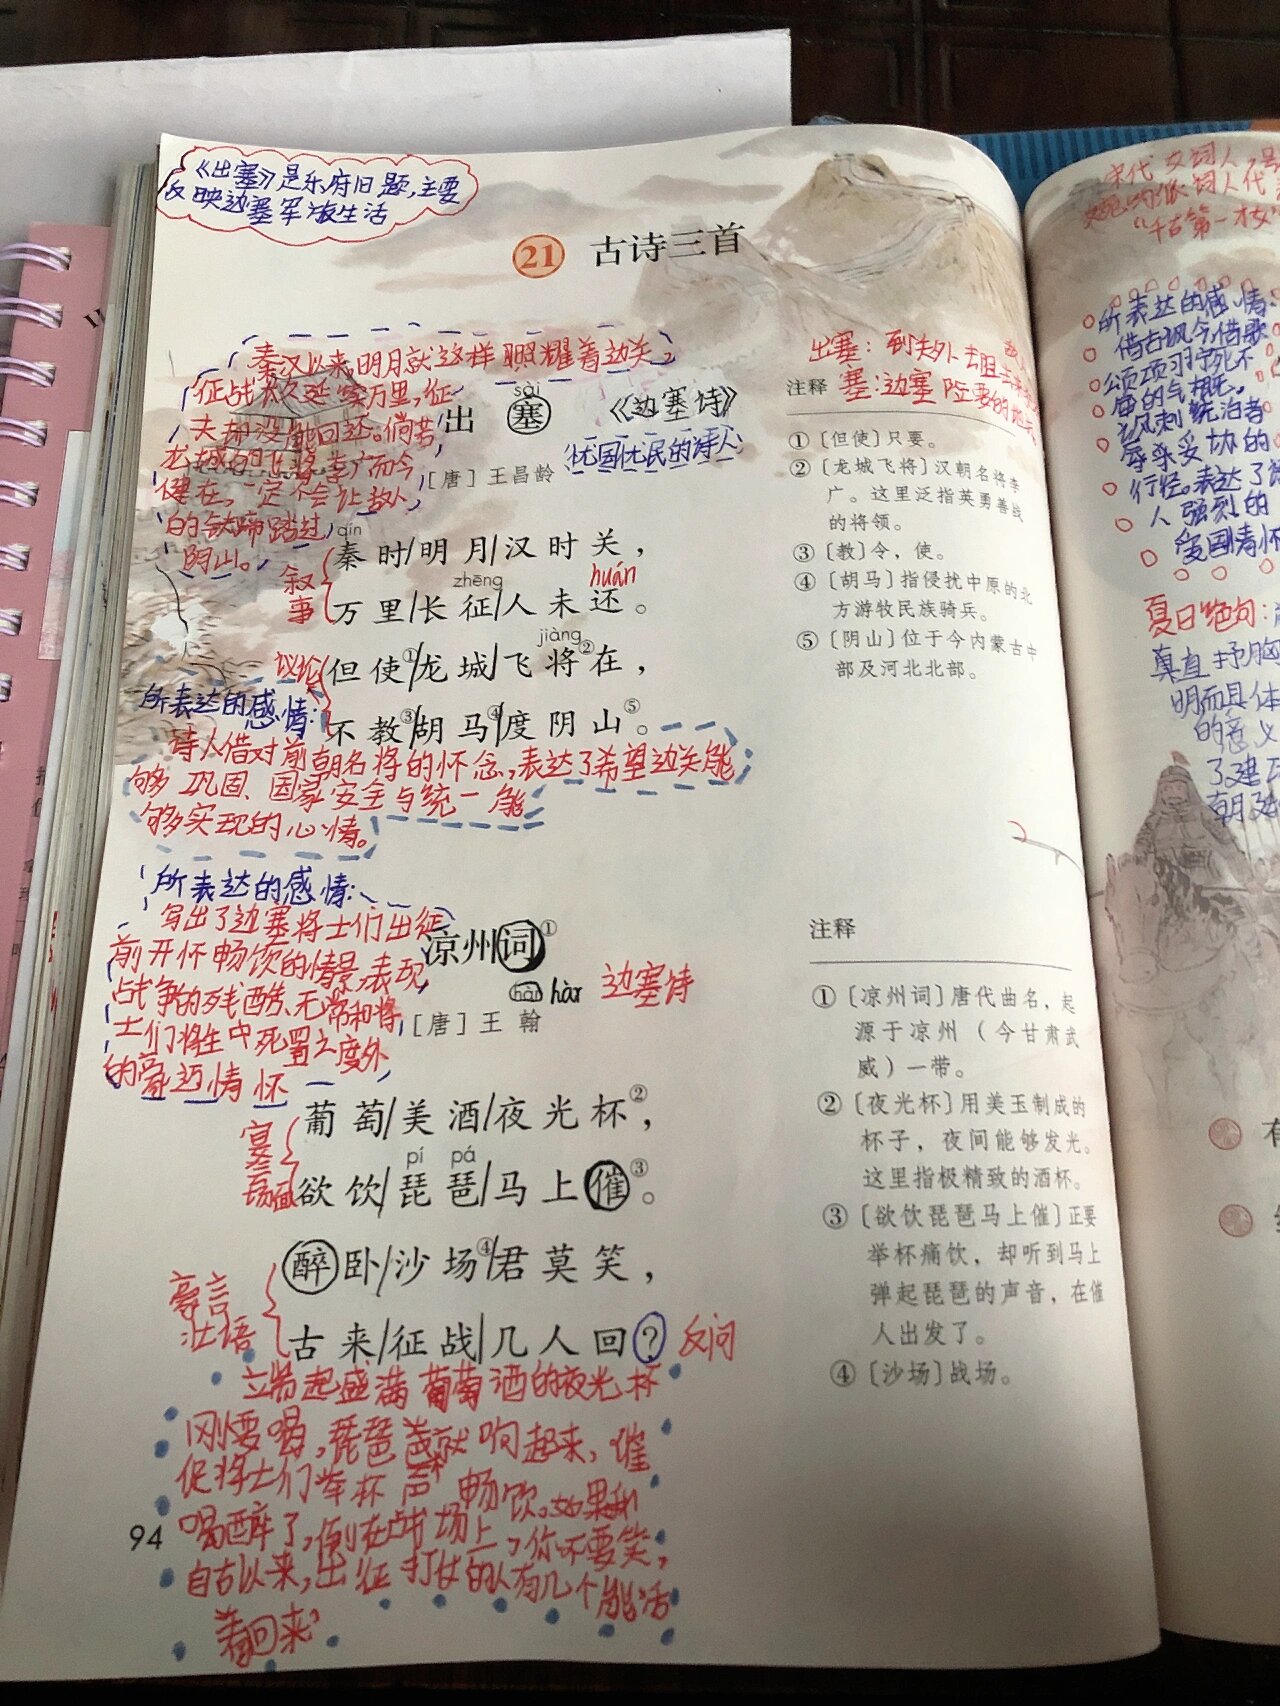 《出塞》是乐府旧题,主要
反映边塞军旅生活
21 古诗三首
秦汉以来,明月就这样照耀着边关,
征战太久延袤万里,征
夫却没能回还。倘若
龙城的飞将李广而今
健在,一定不会让敌人
的铁蹄踏过
阴山。
sài
出塞
《边塞诗》
忧国忧民的诗人
[唐]王昌龄
qín
秦时/明月/汉时关,
zhēng huán
万里/长征/人未还。
叙事
jiàng
但使①/龙城/飞将②在,
不教③/胡马④/度阴山⑤。
议论
所表达的感情:
诗人借对前朝名将的怀念,表达了希望边关能
够巩固、国家安全与统一能
够实现的心情。
出塞:到塞外去
塞:边塞 险要的地方
注释
①〔但使〕只要。
②〔龙城飞将〕汉朝名将李
广。这里泛指英勇善战
的将领。
③〔教〕令,使。
④〔胡马〕指侵扰中原的北
方游牧民族骑兵。
⑤〔阴山〕位于今内蒙古中
部及河北北部。
所表达的感情:
写出了边塞将士们出征
前开怀畅饮的情景,表现
战争的残酷、无常和将
士们将生中死置之度外
的豪迈情怀
凉州词①
hàn hàn
边塞诗
[唐]王翰
葡萄/美酒/夜光杯②,
pí pá
欲饮/琵琶/马上催③。
宴会场面
醉卧/沙场④/君莫笑,
古来/征战/几人回?
反问
豪言
壮语
立端起盛满葡萄酒的夜光杯
刚要喝,琵琶声就响起来,催
促将士们举杯 畅饮。如果我
喝醉了,倒在战场上,你不要笑,
自古以来,出征打仗的人有几个能活
着回来?
94
注释
①〔凉州词〕唐代曲名,起
源于凉州(今甘肃武
威)一带。
②〔夜光杯〕用美玉制成的
杯子,夜间能够发光。
这里指极精致的酒杯。
③〔欲饮琵琶马上催〕正要
举杯痛饮,却听到马上
弹起琵琶的声音,在催
人出发了。
④〔沙场〕战场。
宋代女词人
婉约派词人代
“千古第一才女”
所表达的感情:
借古讽今,借歌
颂项羽宁死不
屈的气概。
讽刺统治者
辱求妥协的
行径。表达了诗
人强烈的
爱国情怀
夏日绝句:
真直抒胸
明而具体
的意义
了建功
朝廷